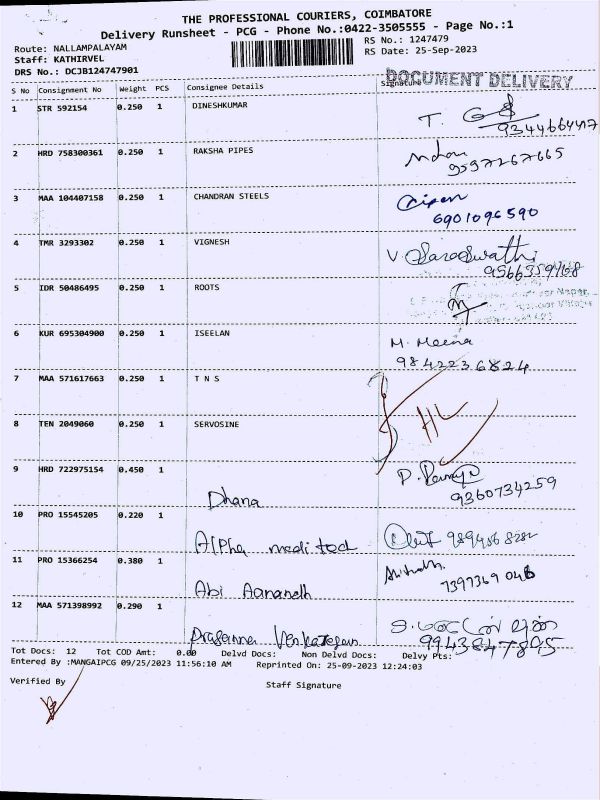 THE PROFESSIONAL COURIERS, COIMBATORE
Delivery Runsheet - PCG - Phone No.:0422-3505555 - Page No.:1
Route: NALLAMPALAYAM RS No.: 1247479
Staff: KATHIRVEL RS Date: 25-Sep-2023
DRS No.: DCJB124747901
DOCUMENT DELIVERY
S No Consignment No Weight PCS Consignee Details Signature
1 STR 592154 0.250 1 DINESHKUMAR
9344664417
2 HRD 758300361 0.250 1 RAKSHA PIPES
9597267665
3 MAA 104407158 0.250 1 CHANDRAN STEELS
6901096590
4 TMR 3293302 0.250 1 VIGNESH V. Saraswathi
9566359768
5 IDR 50486495 0.250 1 ROOTS
6 KUR 695304900 0.250 1 ISEELAN M. Meena
9842236824
7 MAA 571617663 0.250 1 T N S
8 TEN 2049060 0.250 1 SERVOSINE
9 HRD 722975154 0.450 1
Dhana 9360734259
10 PRO 15545205 0.220 1
Alpha medi tod
11 PRO 15366254 0.380 1
Abi Aanandh 7397369 046
12 MAA 571398992 0.290 1
Prasanna Venkatesan 9943847895
Tot Docs: 12 Tot COD Amt: 0.00 Delvd Docs: Non Delvd Docs: Delvy Pts:
Entered By :MANGAIPCG 09/25/2023 11:56:10 AM Reprinted On: 25-09-2023 12:24:03
Verified By Staff Signature